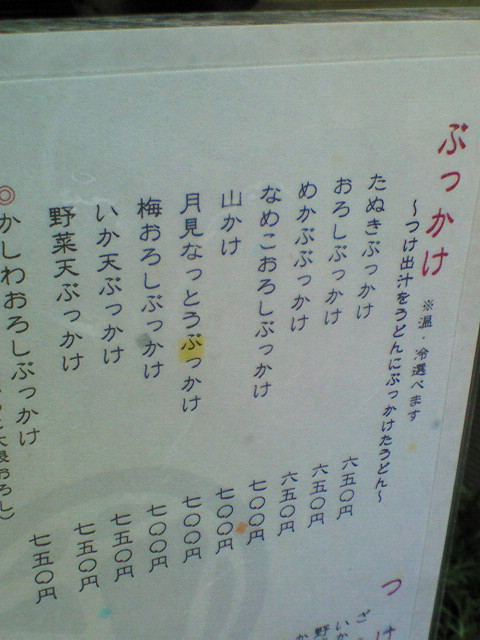 ぶっかけ ※温・冷選べます
～つけ出汁をうどんにぶっかけたうどん～
たぬきぶっかけ 六五〇円
おろしぶっかけ 六五〇円
めかぶぶっかけ 六五〇円
なめこおろしぶっかけ 七〇〇円
山かけ 七〇〇円
月見なっとうぶっかけ 七〇〇円
梅おろしぶっかけ 七〇〇円
いか天ぶっかけ 七五〇円
野菜天ぶっかけ 七五〇円
◎かしわおろしぶっかけ 七五〇円
大根おろし）
つけ
ざ
いか
野
か